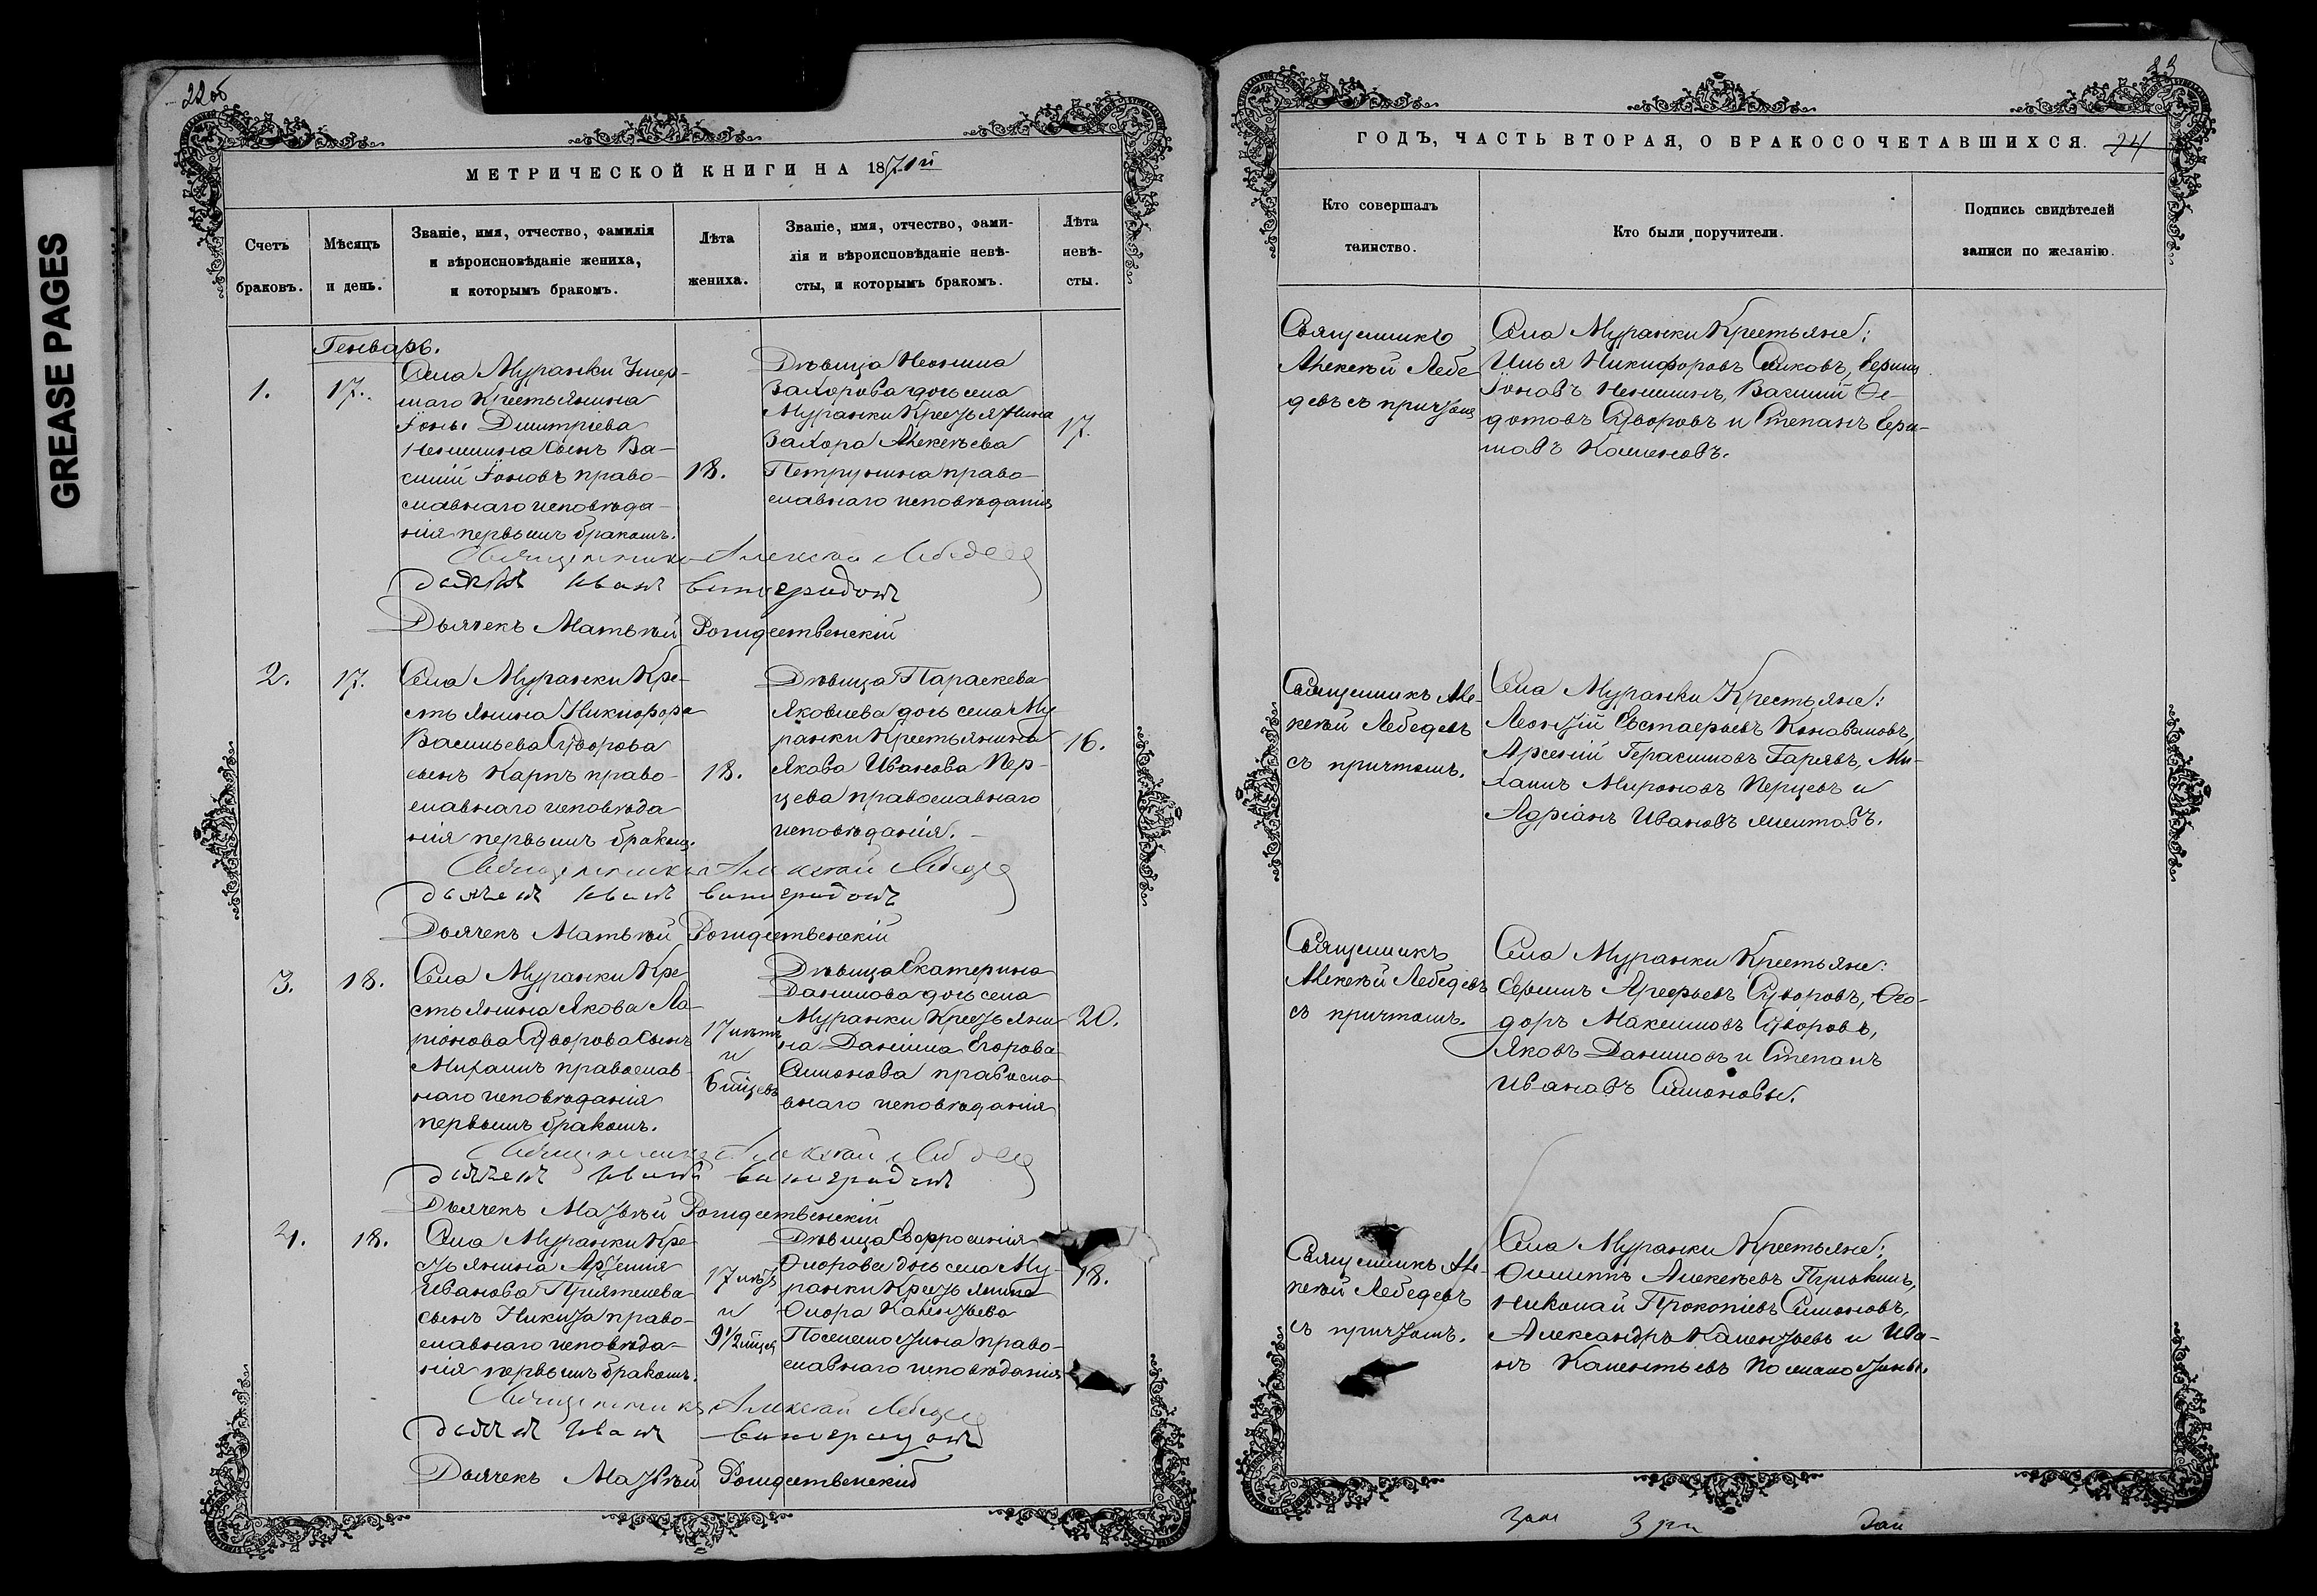 GREASE PAGES
22об
МЕТРИЧЕСКОЙ КНИГИ НА 1870й
Счетъ браковъ.
Мѣсяцъ и день.
Званіе, имя, отчество, фамилія
и вѣроисповѣданіе жениха,
и которымъ бракомъ.
Лѣта
жениха.
Званіе, имя, отчество, фами-
лія и вѣроисповѣданіе невѣ-
сты, и которымъ бракомъ.
Лѣта
невѣ-
сты.
Генварь.
1.
17.
Села Муранки Умер-
шаго Крестьянина
Іоны Димитріева
Сынъ Ва-
силій Іоновъ право-
славнаго исповѣда-
нія первымъ бракомъ.
18.
Дѣвица Неонила
Захорова дочь села
Муранки Крестьянина
Захора Алексѣева
Петрунина право-
славнаго исповѣданія
17.
Священникъ Алексѣй Лебедев
Дьячекъ Иванъ Виноградовъ
Дьячекъ Матвѣй Рождественскій
2.
17.
Села Муранки Кре-
стьянина Никифора
Васильева Суворова
сынъ Карпъ право-
славнаго исповѣда
нія первымъ бракомъ.
18.
Дѣвица Параскева
Яковлева дочь села Му
ранки Крестьянина
Якова Иванова Пер-
цева православнаго
исповѣданія.
16.
Священникъ Алексѣй Лебедев
Дьячекъ Иванъ Виноградовъ
Дьячекъ Матвѣй Рождественскій
3.
18.
Села Муранки Кре
стьянина Якова Ла-
ріонова Суворова сынъ
Михаилъ православ-
наго исповѣданія
первымъ бракомъ.
17 лѣтъ
и
6 мѣсцевъ
Дѣвица Екатерина
Данилова дочь села
Муранки Крестьяни
на Данила Егорова
Симонова правосла
внаго исповѣданія
20.
Священникъ Алексѣй Лебедев
Дьячекъ Иванъ Виноградовъ
Дьячекъ Матвѣй Рождественскій
4.
18.
Села Муранки Кре
стьянина Арсенія
Иванова Приятелева
сынъ Никита право-
славнаго исповѣда-
нія первымъ бракомъ.
17 лѣтъ
и
9 1/2 мѣсцев
Дѣвица Евфросинія
Флорова дочь села Му-
ранки Крестьянина
Флора Калентьева
право-
славнаго исповѣданія
18.
Священникъ Алексѣй Лебедев
Дьячекъ Иванъ Виноградовъ
Дьячекъ Матвѣй Рождественскій
23
ГОДЪ, ЧАСТЬ ВТОРАЯ, О БРАКОСОЧЕТАВШИХСЯ. 24
Кто совершалъ
таинство.
Кто были поручители.
Подпись свидѣтелей
записи по желанію.
Священникъ
Алексѣй Лебе
девъ съ причтомъ
Села Муранки Крестьяне:
Илья Никифоровъ
Іоновъ Василій Ѳе-
дотовъ Суворовъ и Степанъ
Священникъ Але-
ксѣй Лебедевъ
съ причтомъ.
Села Муранки Крестьяне:
Леонтій Евстафьевъ Коноваловъ,
Арсеній Герасимовъ Ми-
хаилъ Мироновъ Перцевъ и
Адріанъ Ивановъ
Священникъ
Алексѣй Лебедевъ
съ причтомъ.
Села Муранки Крестьяне:
Суворовъ, Ѳео-
доръ Максимовъ Суворовъ,
Яковъ Даниловъ и Степанъ
Ивановъ Симоновы.
Священникъ Але-
ксѣй Лебедевъ
съ причтомъ.
Села Муранки Крестьяне:
Филиппъ Алексѣевъ
Николай Прокопіевъ Симоновъ,
Александръ Калентьевъ и Ива-
нъ Калентьевъ